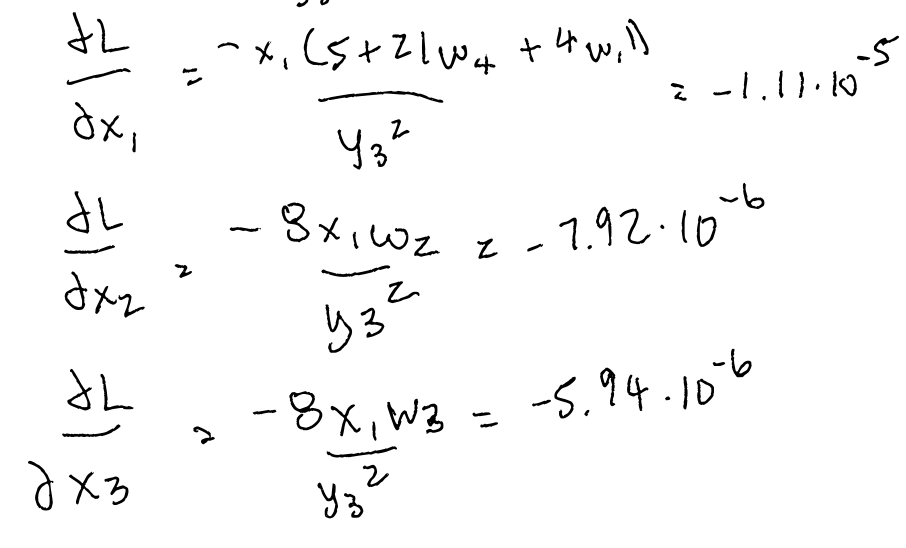 ∂L/∂x₁ = -x₁(5+21w₄ + 4w₁)/y₃² = -1.11·10⁻⁵
∂L/∂x₂ = -8x₁w₂/y₃² = -7.92·10⁻⁶
∂L/∂x₃ = -8x₁w₃/y₃² = -5.94·10⁻⁶